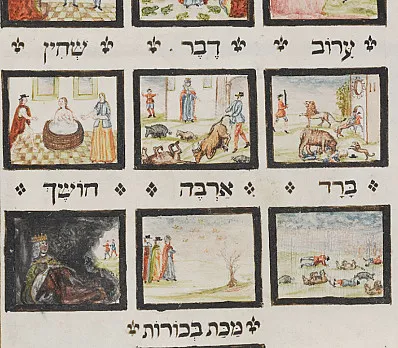 עָרוֹב דֶבֶר שְׁחִין
בָּרָד אַרְבֶּה חוֹשֶׁךְ
מַכַּת בְּכוֹרוֹת